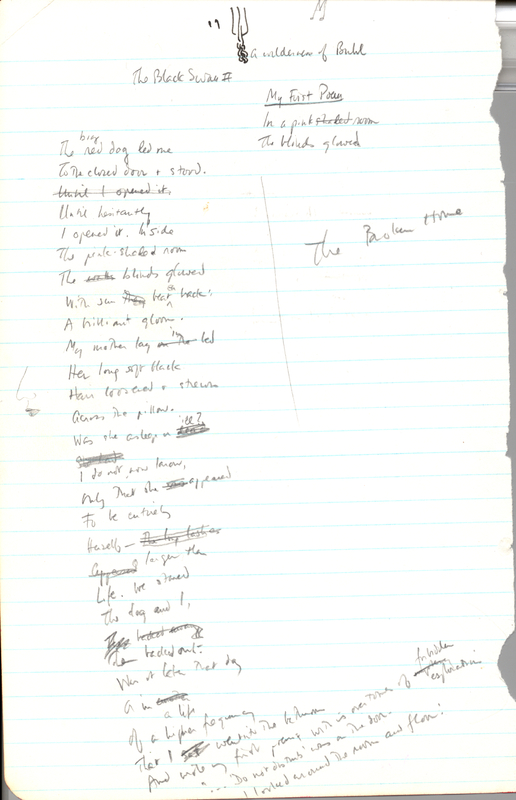 19
a wilderness of
The Black Swan II
My First Poem
In a pink shaded room
The blinds glowed
The Broken Home
The big red dog led me
To the closed door + stood.
Until I opened it,
Until hesitantly
I opened it. Inside
The pink-shaded room
The blinds glowed
With sun beat back:
A brilliant gloom.
My mother lay on the in bed
Her long soft black
Hair loosened + strewn
Across the pillow.
Was she asleep or ill?
I do not now know,
Only that she appeared
To be entirely
Herself— The long lashes
Appeared larger than
Life. We stared
The dog and I,
backed out.
Was it later that day
Or in
a life
Of a higher frequency
That I went into the bathroom
And wrote my first poem, with its overtones of forbidden exploration:
"... Do not disturb" was on the door.
I looked around the room and floor!